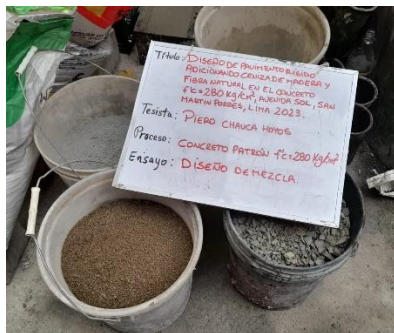 Título: DISEÑO DE PAVIMENTO RIGIDO
ADICIONANDO CENIZA DE MADERA Y
FIBRA NATURAL EN EL CONCRETO
f'c=280 kg/cm², AVENIDA SOL, SAN
MARTIN PORRES, LIMA 2023.
Tesista: PIERO CHAUCA HOYOS
Proceso: CONCRETO PATRÓN f'c=280 kg/cm²
Ensayo: DISEÑO DE MEZCLA